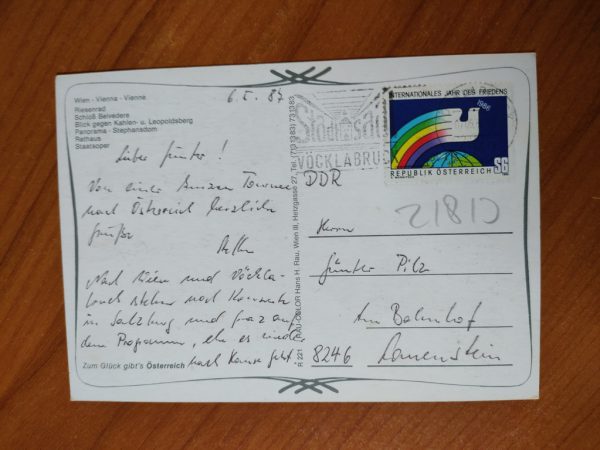 Wien - Vienna - Vienne
Riesenrad
Schloß Belvedere
Blick gegen Kahlen- u. Leopoldsberg
Panorama - Stephansdom
Rathaus
Staatsoper
6. I. 87
Lieber Günter!
Von einer kurzen Tournee
nach Österreich herzliche
Grüße
Nach Wien und Vöckla-
bruck stehen noch Konzerte
in Salzburg und Graz auf
dem Programm, ehe es wieder
nach Hause geht.
Zum Glück gibt's Österreich
R 221 RAU-COLOR Hans H. Rau, Wien III, Herzgasse 27, Tel.
VÖCKLABRUCK
INTERNATIONALES JAHR DES FRIEDENS
1986
REPUBLIK ÖSTERREICH S6
DDR
Herrn
Günter Pilz
Am Bahnhof
8246 Lauenstein